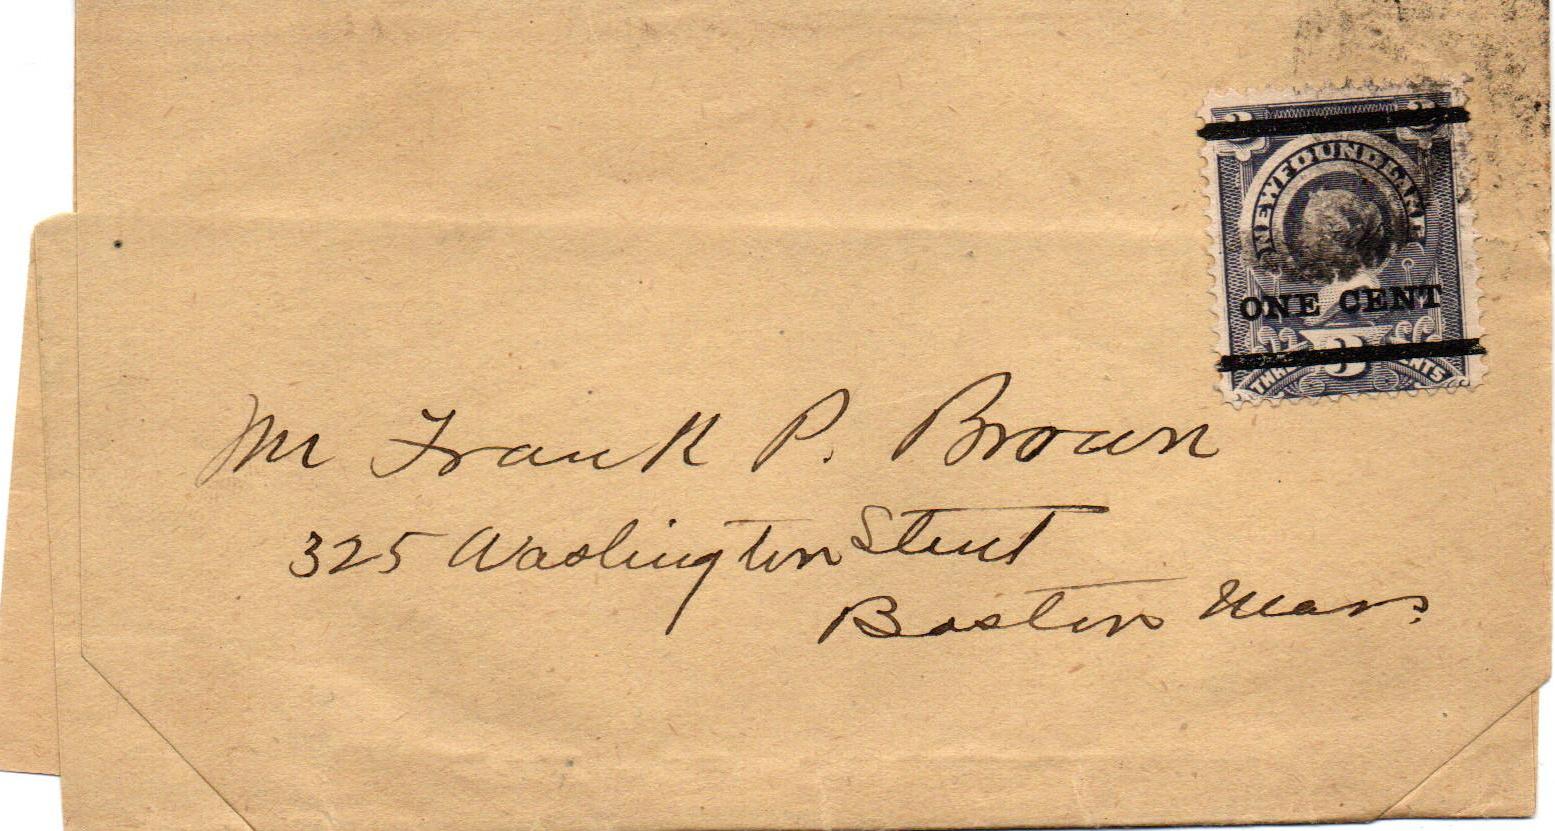 3 3
NEWFOUNDLAND
ONE CENT
3
THREE CENTS
Mr Frank P. Brown
325 Washington Street
Boston Mass.